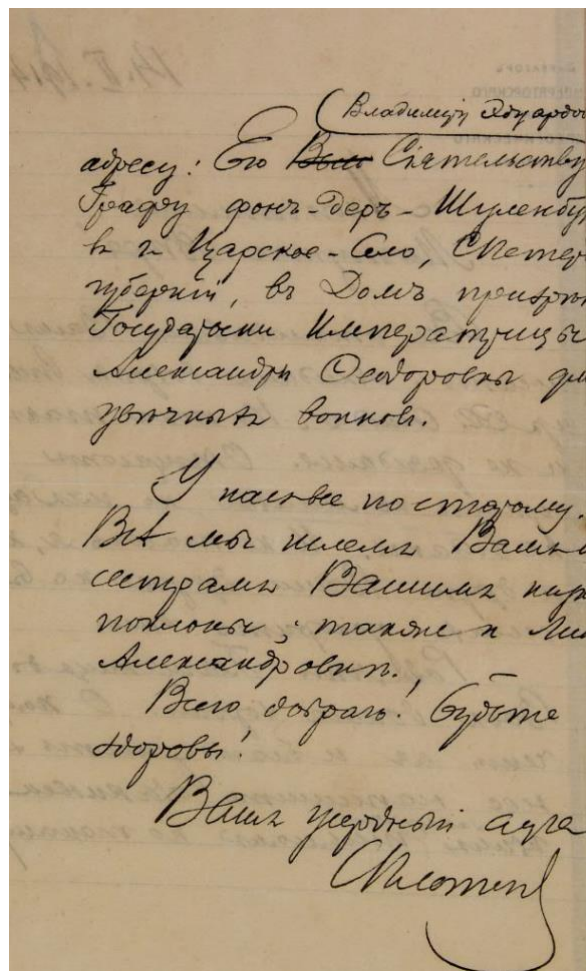 Владиміру Эдуардо
адресу: Его Выс Сіятельству
Графу фонъ-деръ-Шуленбу
въ г. Царское-Село, СПетер
губерніи, въ Домъ призрѣн
Государыни Императрицы
Александры Ѳеодоровны дл
увѣчныхъ воиновъ.
У насъ все по старому.
Всѣ мы шлемъ Вамъ
сестрамъ Вашимъ
поклоны; также и
Александровнѣ.
Всего добраго! Будьте
здоровы!
Вашъ усердный слуга